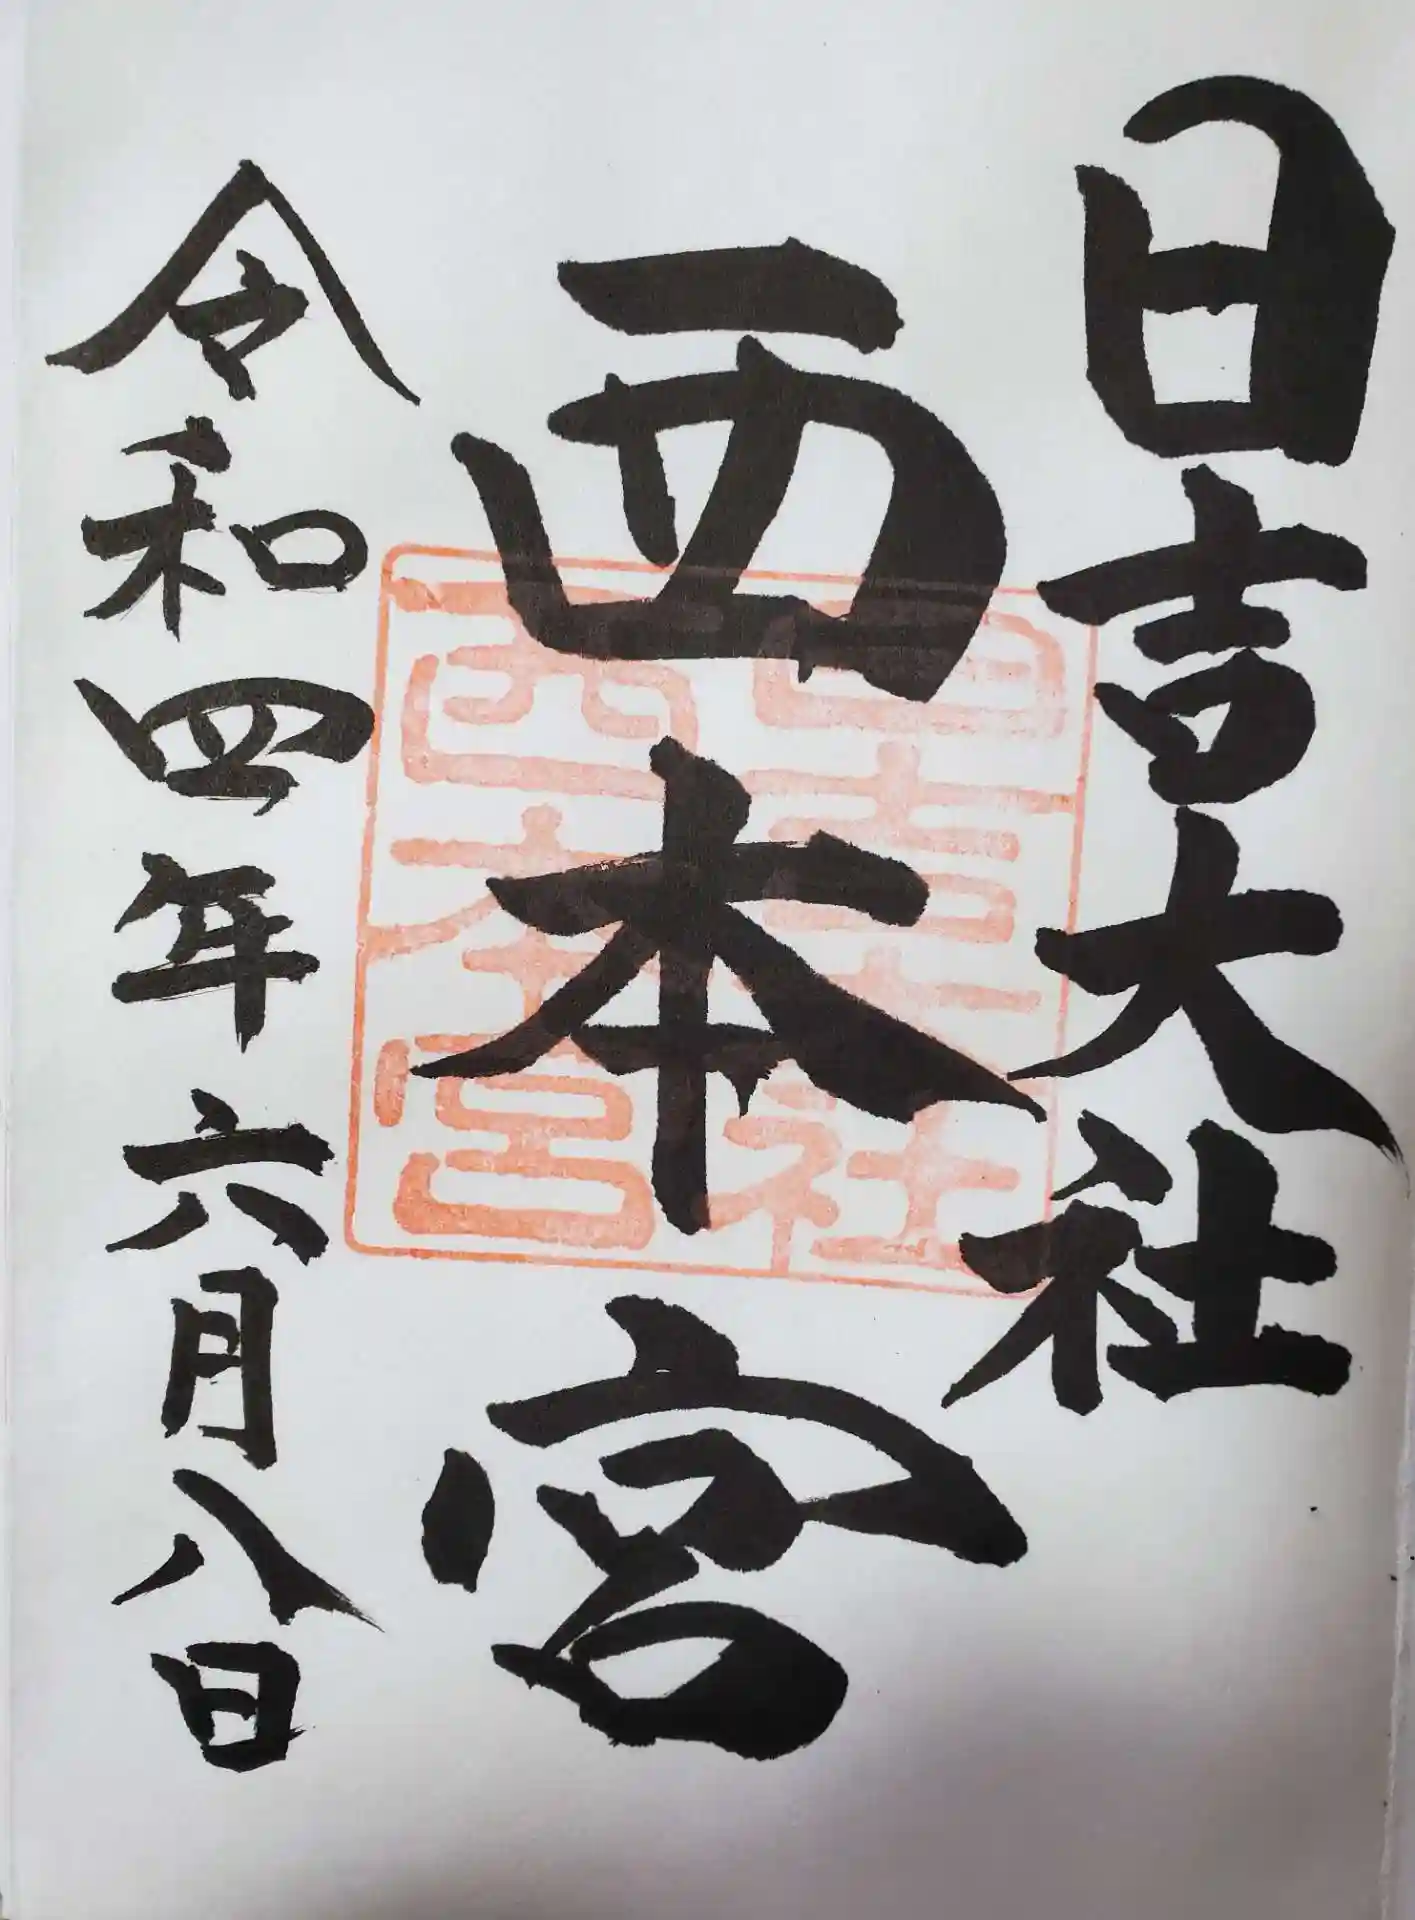 日吉大社
西本宮
令和四年六月八日
日吉大社
西本宮